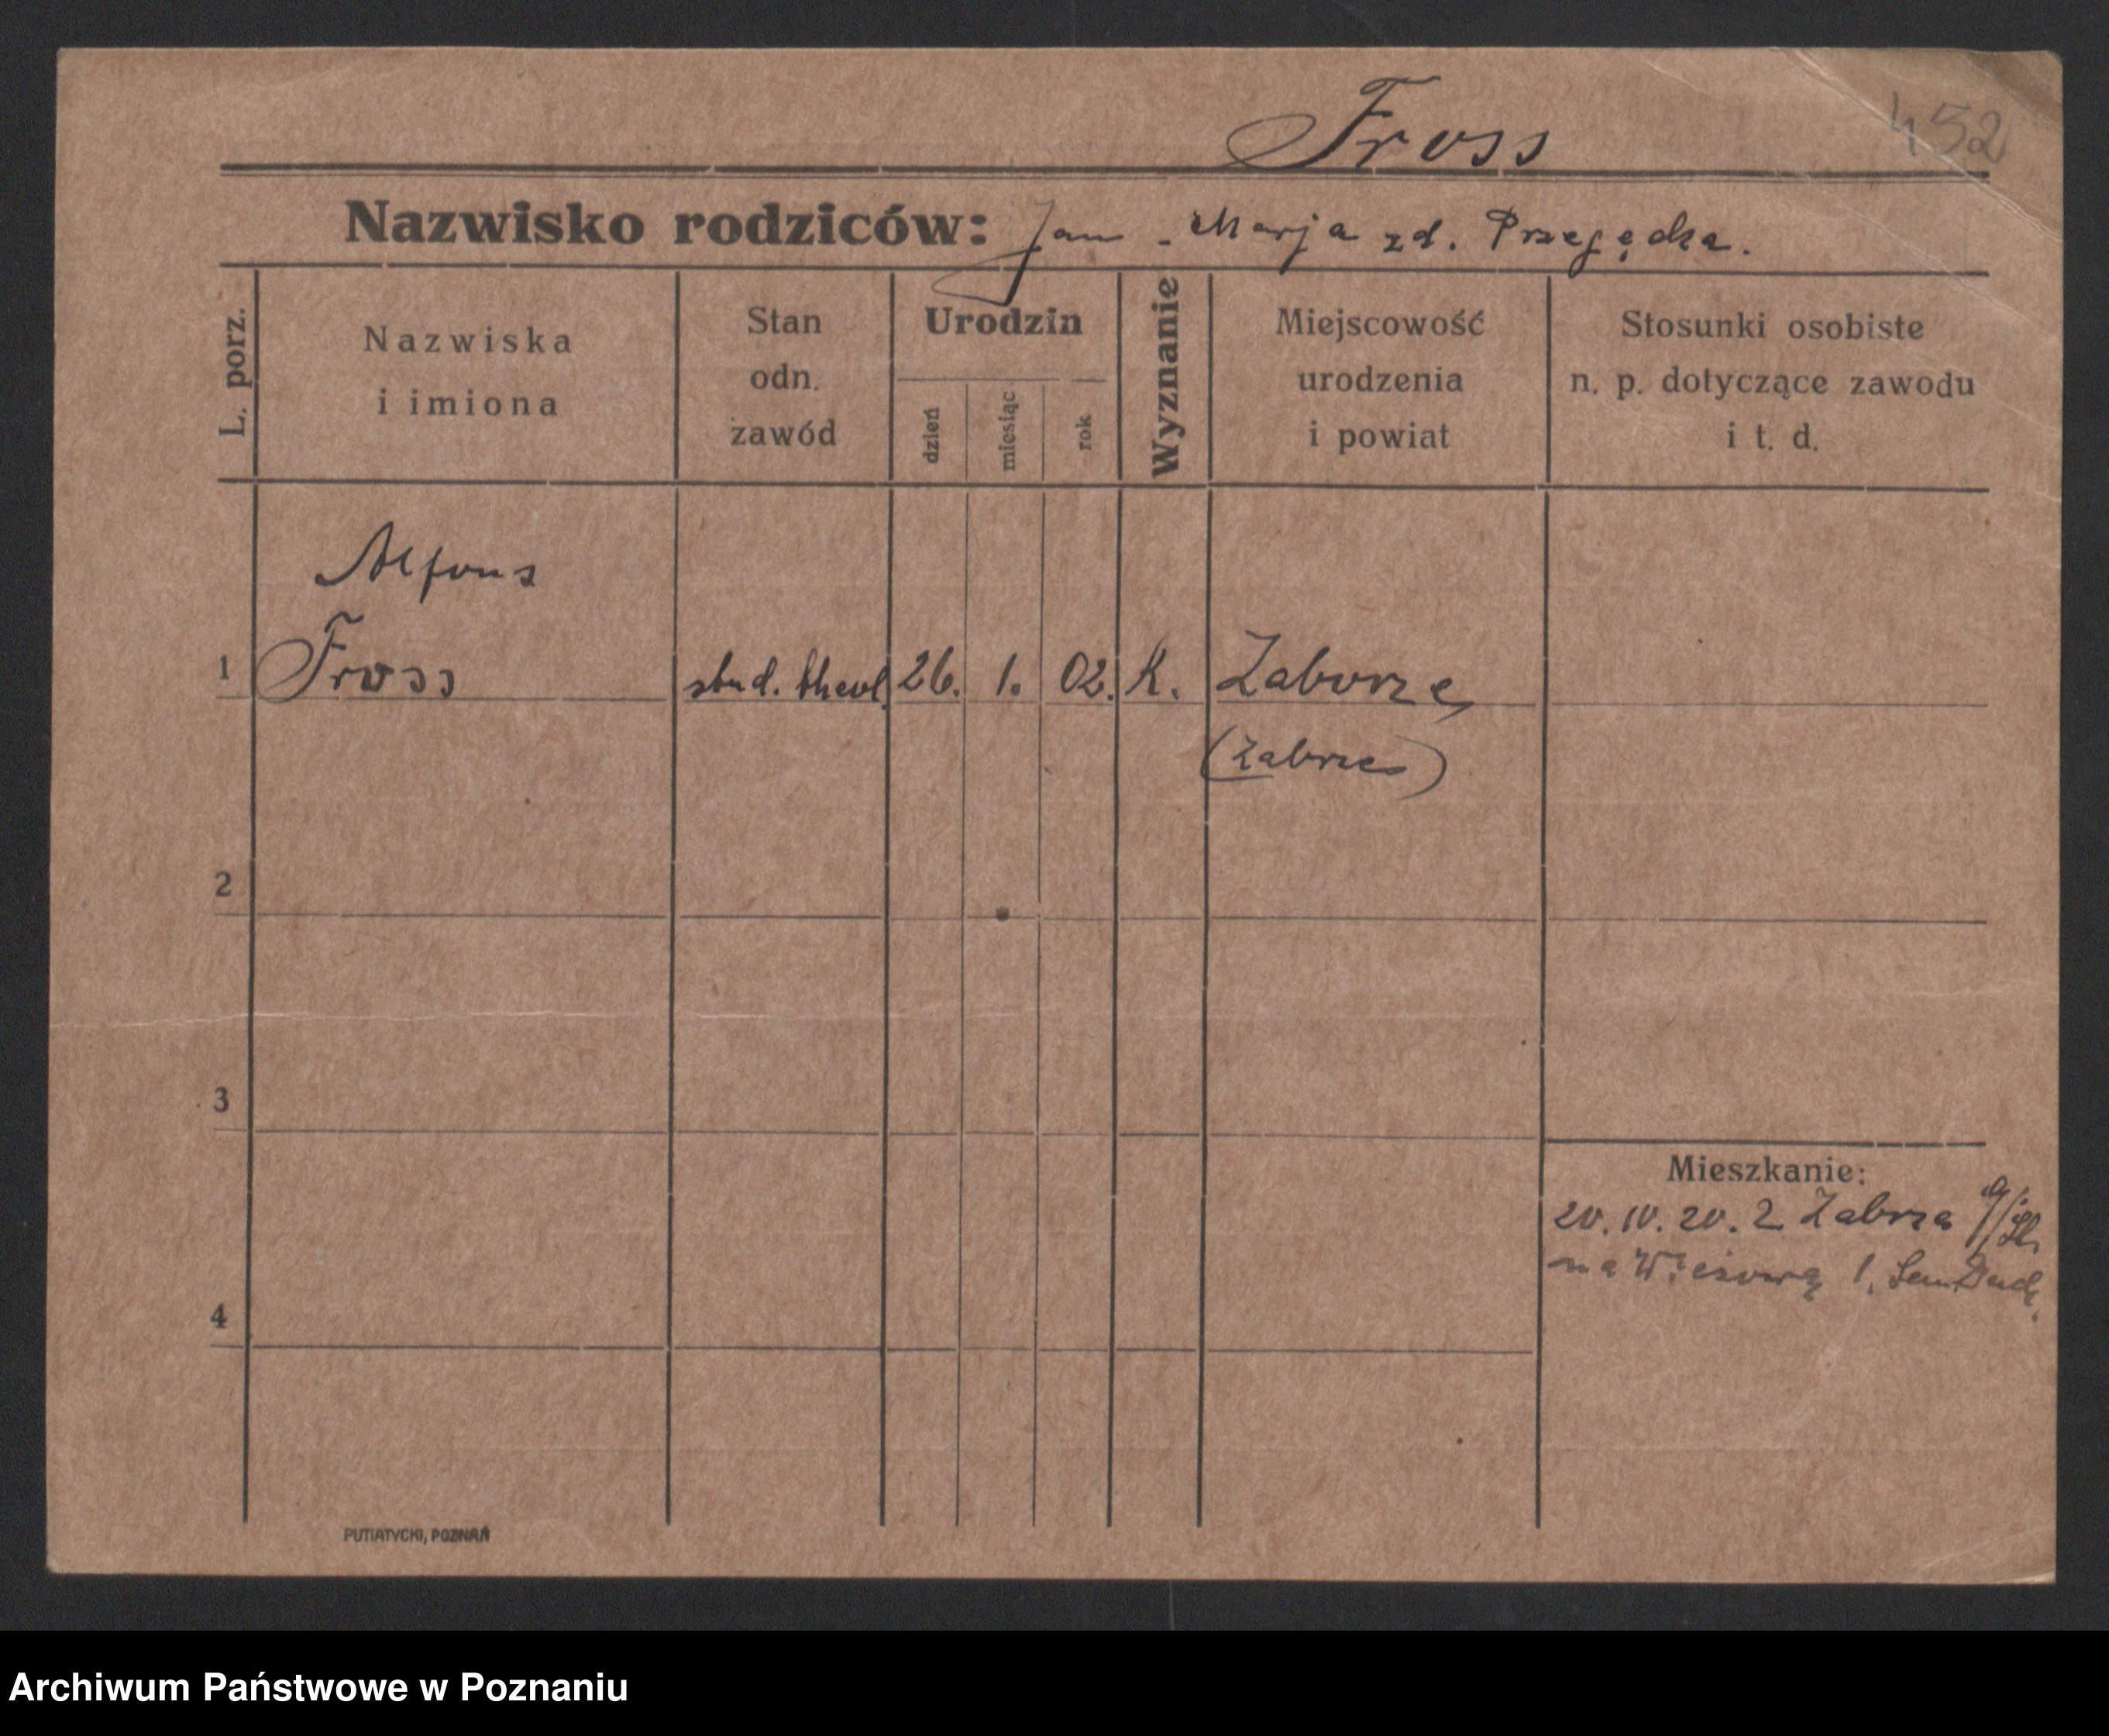 Fross
452
Nazwisko rodziców: Jan - Marja zd. Przegędza.
L. porz.
Nazwiska
i imiona
Stan
odn.
zawód
Urodzin
dzień
miesiąc
rok
Wyznanie
Miejscowość
urodzenia
i powiat
Stosunki osobiste
n. p. dotyczące zawodu
i t. d.
Alfons
1 Fross stud. theol. 26. 1. 02. K. Zaborze,
(Zabrze)
2
3
Mieszkanie:
20. IV. 20. z Zabrza G/Śl.
na Wieżową 1.
4
PUTIATYCKI, POZNAŃ
Archiwum Państwowe w Poznaniu